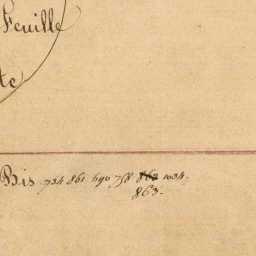 Feuille
te
Bis 734 861 690 758 862 1034.
863.